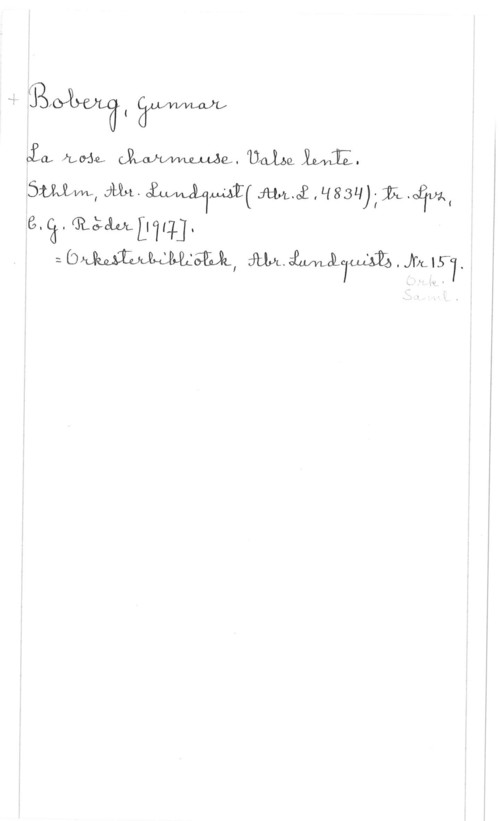 + Boberg, Gunnar
La rose charmeuse. Valse lente.
Sthlm, Abr. Lundquist (Abr.L. 4834); tr. Lpz,
C.G. Röder [1917].
= Orkesterbibliotek, Abr. Lundquists. Nr 159.
Ork.
Saml.